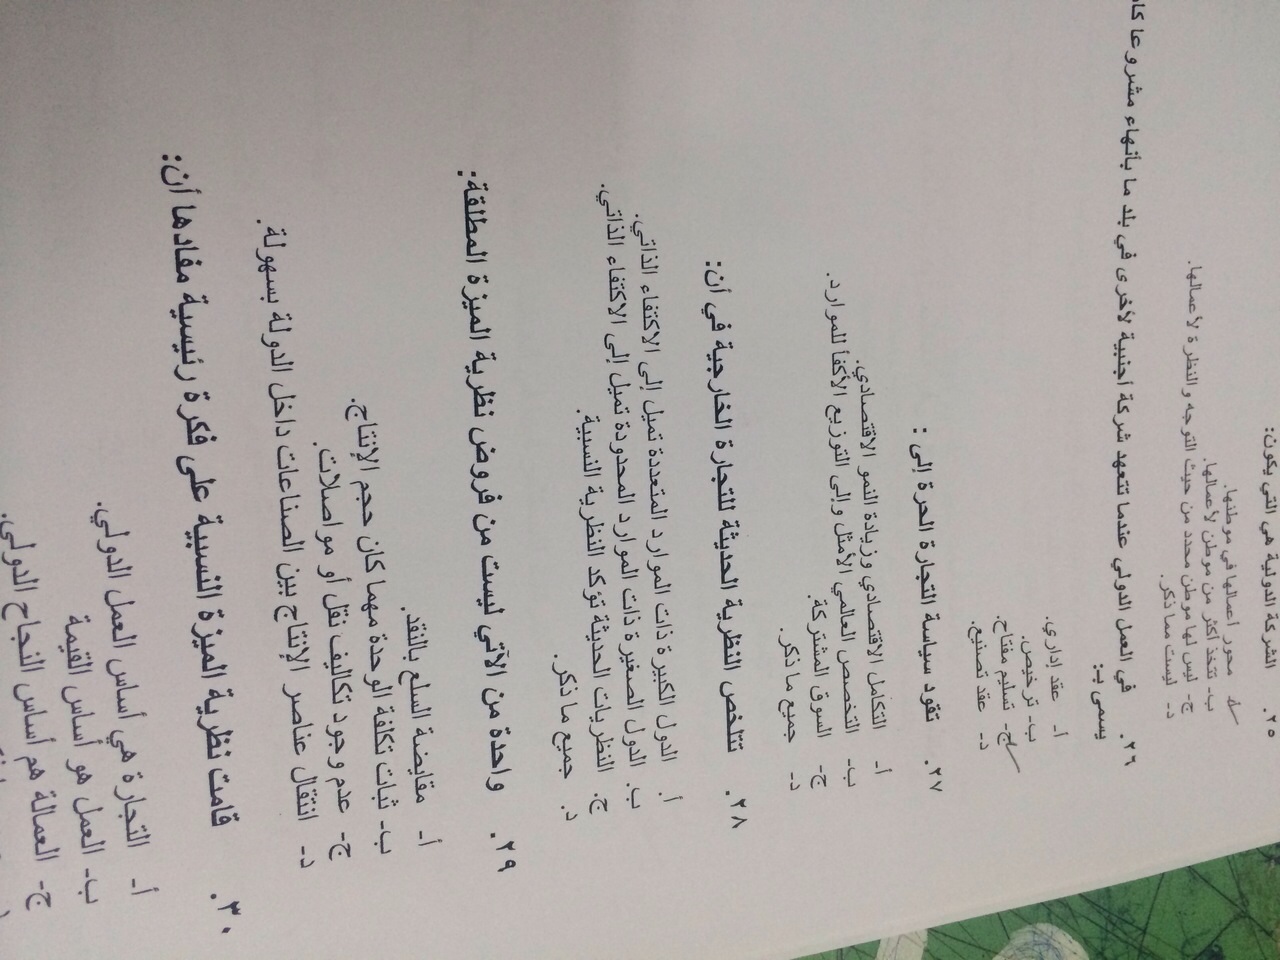 ٢٥. الشركة الدولية هي التي يكون:
أ- محور أعمالها في موطنها.
ب- تتخذ أكثر من موطن لأعمالها.
ج- ليس لها موطن محدد من حيث التوجه والنظرة لأعمالها.
د- ليست مما ذكر.
٢٦. في العمل الدولي عندما تتعهد شركة أجنبية لأخرى في بلد ما بأنهاء مشروعا
يسمى بـ:
أ- عقد إداري.
ب- ترخيص.
ج- تسليم مفتاح.
د- عقد تصنيع.
٢٧. تقود سياسة التجارة الحرة إلى :
أ- التكامل الاقتصادي وزيادة النمو الاقتصادي.
ب- التخصص العالمي الأمثل وإلى التوزيع الأكفأ للموارد.
ج- السوق المشتركة.
د- جميع ما ذكر.
٢٨. تتلخص النظرية الحديثة للتجارة الخارجية في أن:
أ. الدول الكبيرة ذات الموارد المتعددة تميل إلى الاكتفاء الذاتي.
ب. الدول الصغيرة ذات الموارد المحدودة تميل إلى الاكتفاء الذاتي.
ج. النظريات الحديثة تؤكد النظرية النسبية.
د. جميع ما ذكر.
٢٩. واحدة من الآتي ليست من فروض نظرية الميزة المطلقة:
أ- مقايضة السلع بالنقد.
ب- ثبات تكلفة الوحدة مهما كان حجم الإنتاج.
ج- عدم وجود تكاليف نقل أو مواصلات.
د- انتقال عناصر الإنتاج بين الصناعات داخل الدولة بسهولة.
٣٠. قامت نظرية الميزة النسبية على فكرة رئيسية مفادها أن:
أ- التجارة هي أساس العمل الدولي.
ب- العمل هو أساس القيمة
ج- العمالة هم أساس النجاح الدولي.